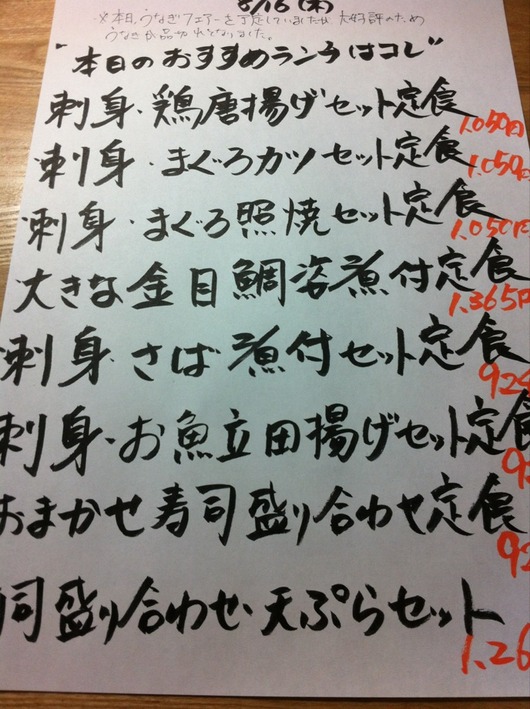 8/16(木)
※本日、うなぎフェアーを予定していましたが、大好評のため
うなぎが品切れとなりました。
"本日のおすすめランチはコレ"
刺身・鶏唐揚げセット定食 1,050円
刺身・まぐろカツセット定食 1,050
刺身・まぐろ照焼セット定食 1,050円
大きな金目鯛姿煮付定食 1,365円
刺身・さば煮付セット定食 92
刺身・お魚立田揚げセット定食 9
おまかせ寿司盛り合わせ定食 92
司盛り合わせ・天ぷらセット 1,26